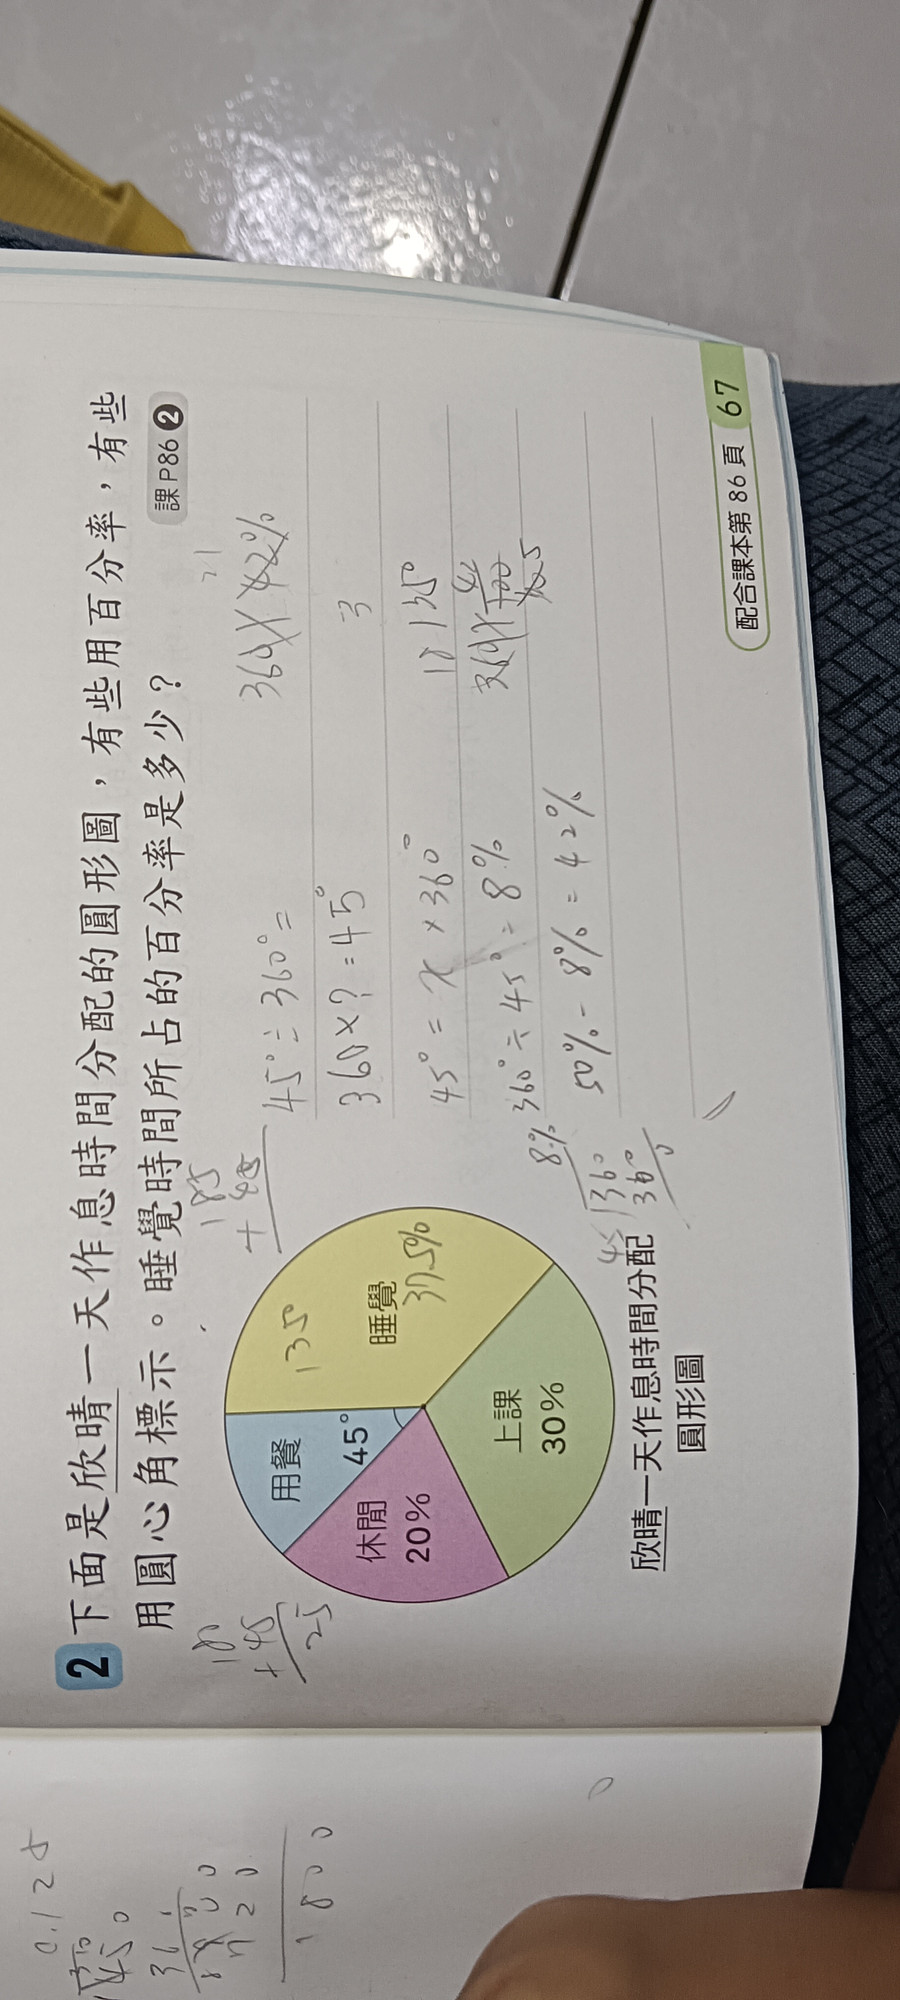 2 下面是欣晴一天作息時間分配的圓形圖，有些用百分率，有些
用圓心角標示。睡覺時間所占的百分率是多少？
課P86 2
用餐
45°
休閒
20%
上課
30%
睡覺
37.5%
135
欣晴一天作息時間分配
圓形圖
45°÷360°=
360×?=45°
45°=x×360°
360°÷45°=8%
50%-8%=42%
8%
45 360
360
0
180
+45
25
135°
配合課本第86頁 67
0.125
1800